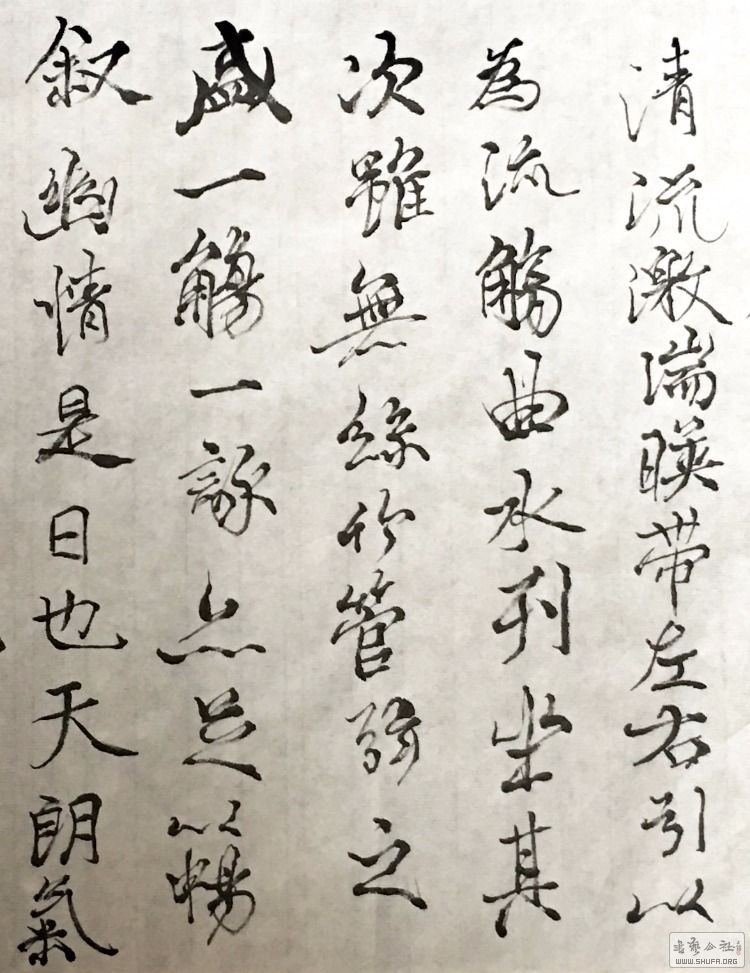 清流激湍暎帶左右引以
為流觴曲水列坐其
次雖無絲竹管弦之
盛一觴一詠亦足以暢
叙幽情是日也天朗氣
WWW.SHUFA.ORG